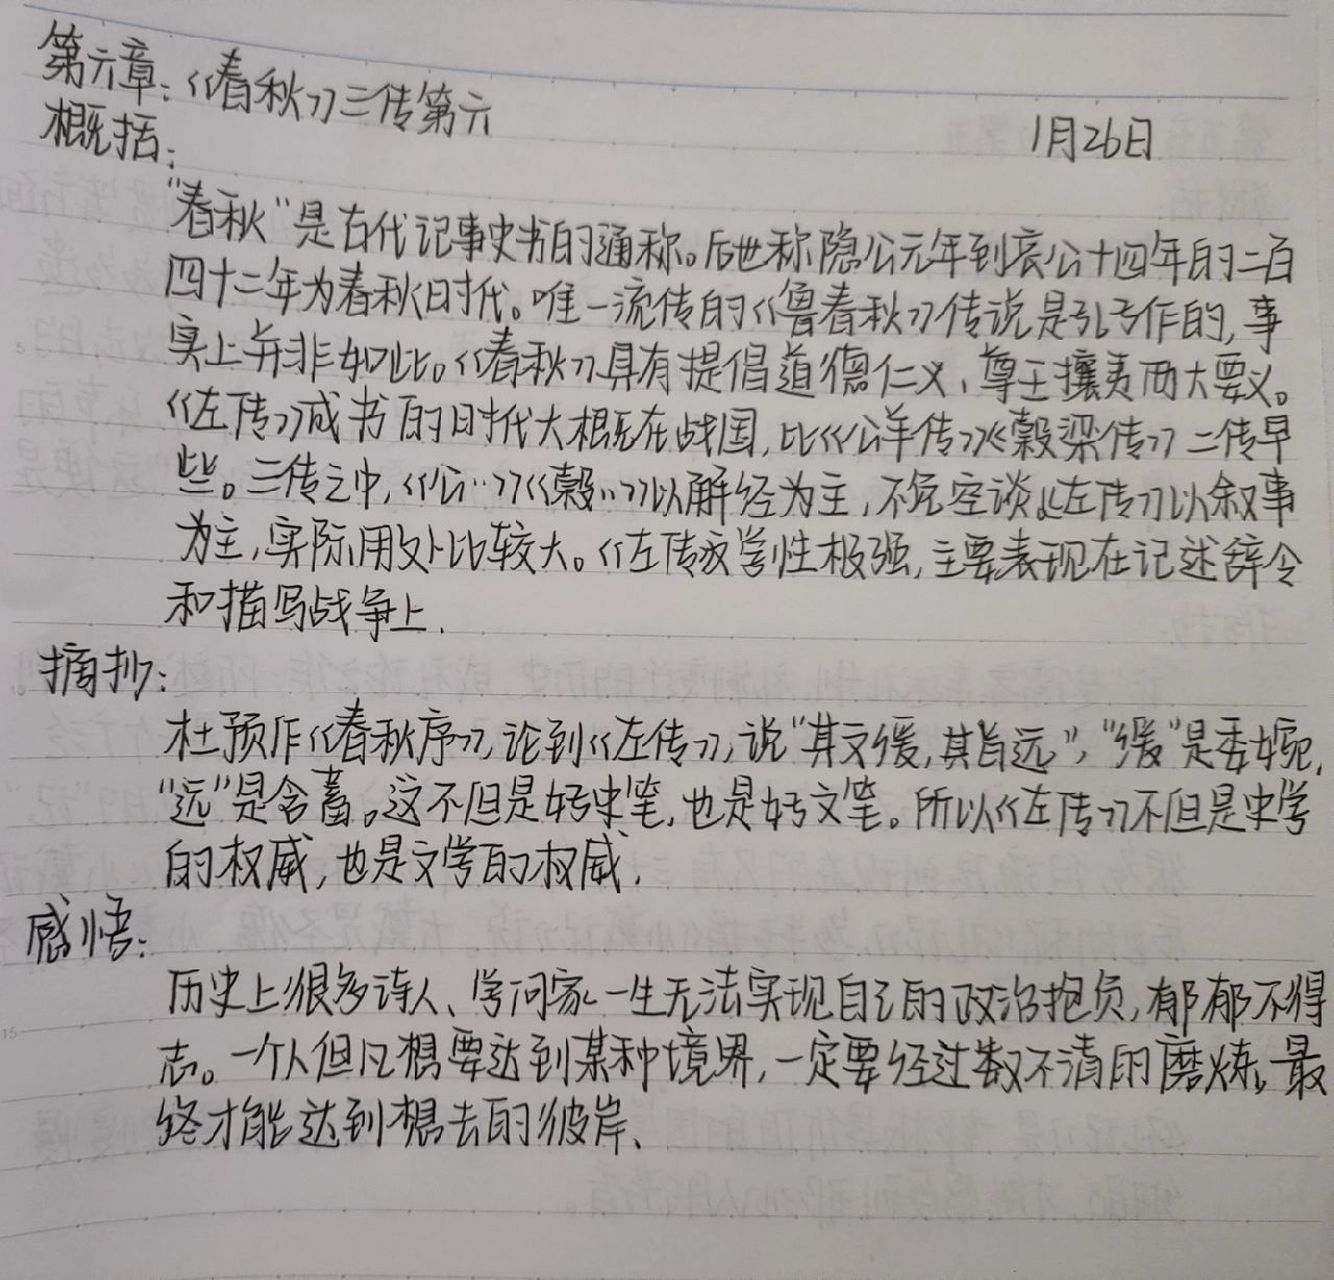 第六章：《春秋》三传第六
1月26日
概括：
“春秋”是古代记事史书的通称。后世称隐公元年到哀公十四年的二百
四十二年为春秋时代。唯一流传的《鲁春秋》传说是孔子作的，事
实上并非如此。《春秋》具有提倡道德仁义、尊王攘夷两大要义。
《左传》成书的时代大概在战国，比《公羊传》《穀梁传》二传早
些。三传之中，《公…》《穀…》以解经为主，不免空谈。《左传》以叙事
为主，实际用处比较大。《左传》文学性极强，主要表现在记述辞令
和描写战争上.
摘抄：
杜预作《春秋序》，论到《左传》，说“其文缓，其旨远”，“缓”是委婉，
“远”是含蓄。这不但是好史笔，也是好文笔。所以《左传》不但是史学
的权威，也是文学的权威.
感悟：
历史上很多诗人、学问家一生无法实现自己的政治抱负，郁郁不得
志。一个人但凡想要达到某种境界，一定要经过数不清的磨炼，最
终才能达到想去的彼岸、